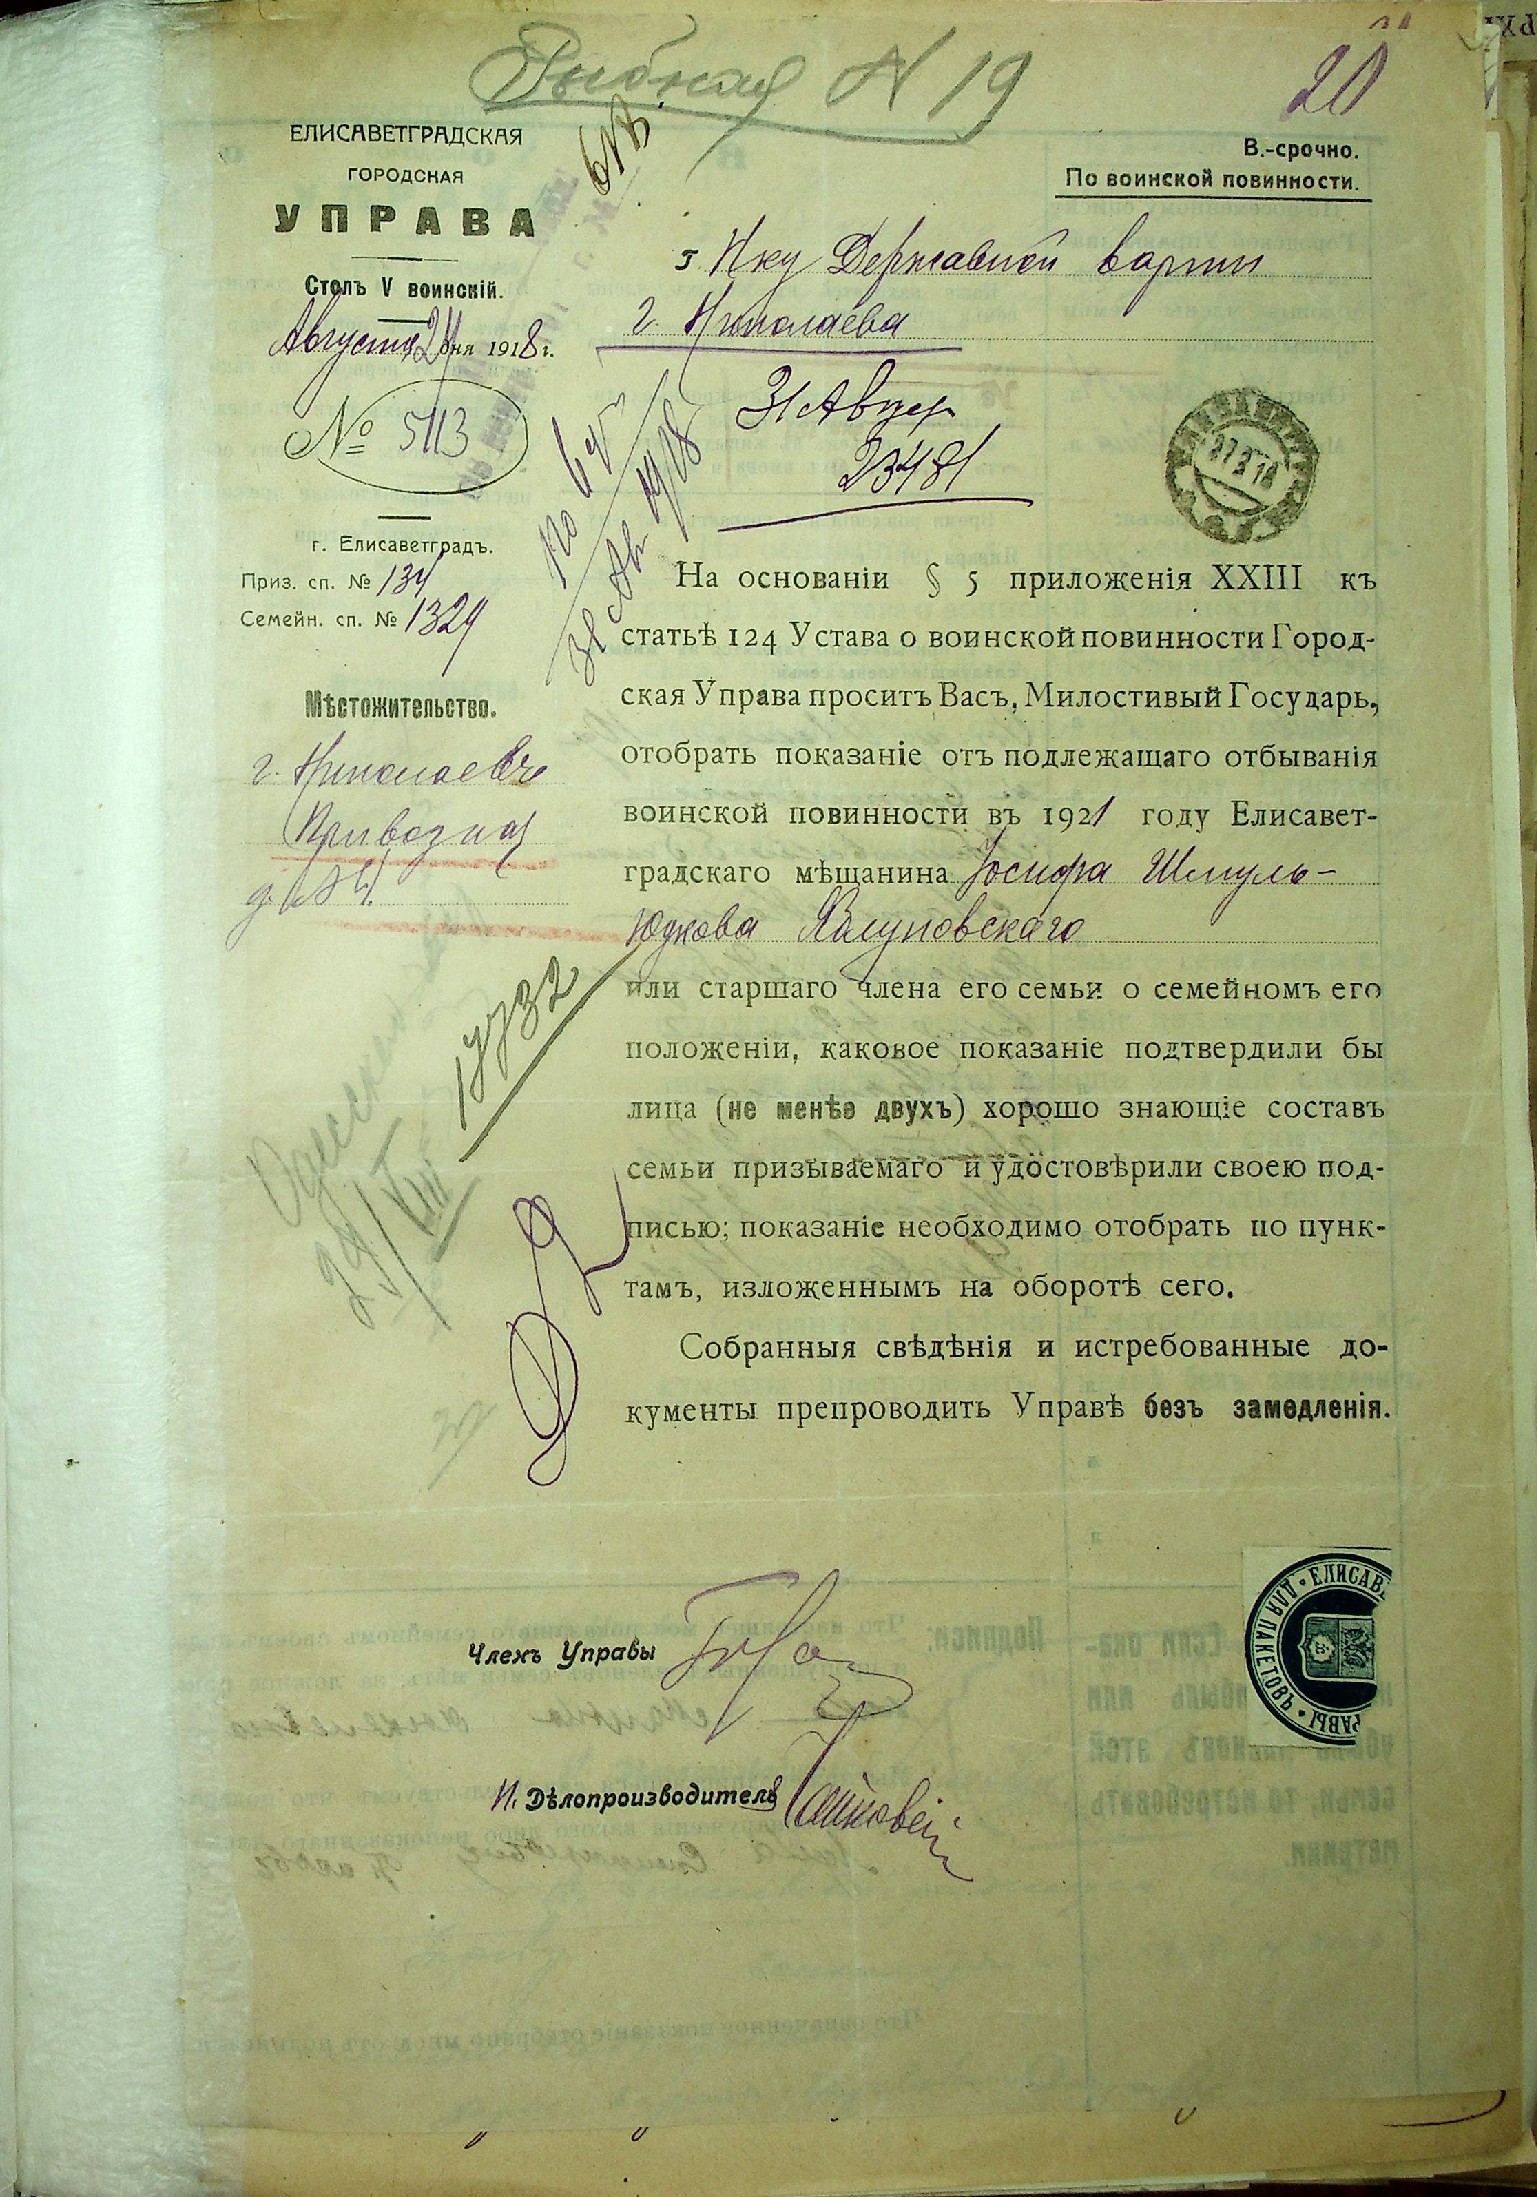 Рыбная N 19
20
ЕЛИСАВЕТГРАДСКАЯ
ГОРОДСКАЯ
УПРАВА
Столъ V воинскій.
Августа 24 дня 1918 г.
№ 5113
г. Елисаветградъ.
Приз. сп. № 134
Семейн. сп. № 1329
Мѣстожительство.
г. Николаевъ
Привозная
д. № 4
В.-срочно.
По воинской повинности.
Державной варти
г. Николаева
31 Август
23481
31 Ав 1918
17732
29/VIII
На основаніи § 5 приложенія XXIII къ
статьѣ 124 Устава о воинской повинности Город-
ская Управа проситъ Васъ, Милостивый Государь,
отобрать показаніе отъ подлежащаго отбыванія
воинской повинности въ 1921 году Елисавет-
градскаго мѣщанина Іосифа Шмуль-
Юдкова Калуповскаго
или старшаго члена его семьи о семейномъ его
положеніи, каковое показаніе подтвердили бы
лица (не менѣе двухъ) хорошо знающіе составъ
семьи призываемаго и удостовѣрили своею под-
писью; показаніе необходимо отобрать по пунк-
тамъ, изложеннымъ на оборотѣ сего.
Собранныя свѣдѣнія и истребованные до-
кументы препроводить Управѣ безъ замедленія.
Членъ Управы
И. Дѣлопроизводителя
ДЛЯ ПАКЕТОВЪ • ЕЛИСАВЕ
РАВЫ